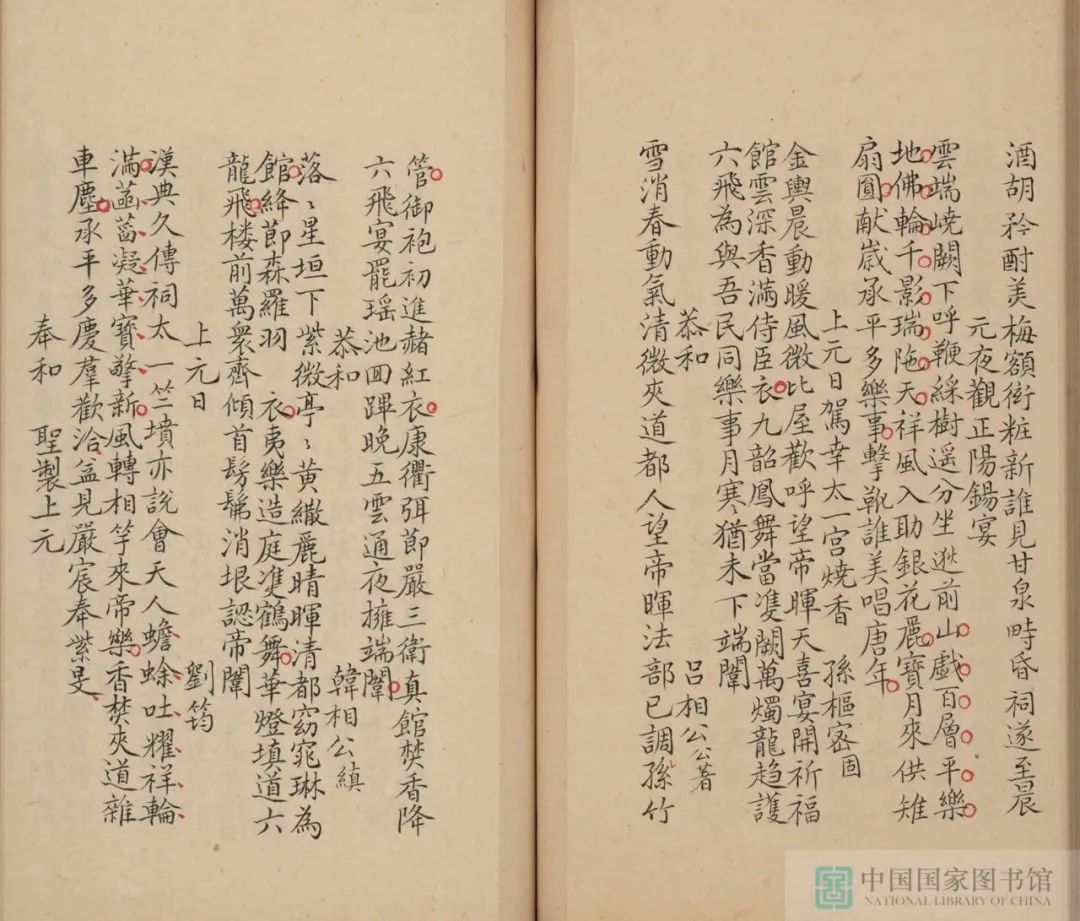 酒胡矜酎美梅額衒粧新誰見甘泉畤昏祠遂至晨
元夜觀正陽錫宴
雲端嶢闕下呼鞭綵樹遥分坐迤前山戲百層平樂
地佛輪千影瑞陁天祥風入助銀花麗寶月來供雉
扇圓献歳承平多樂事擊靴誰美唱唐年
上元日駕幸太一宮燒香 孫樞密固
金輿晨動暖風微比屋歡呼望帝暉天喜宴開祈福
館雲深香滿侍臣衣九韶鳳舞當㕠闕萬燭龍趋護
六飛為與吾民同樂事月寒猶未下端闈
恭和 吕相公公著
雪消春動氣清微夾道都人望帝暉法部已調孫竹
管御袍初進赭紅衣康衢弭節嚴三衛真館焚香降
六飛宴罷瑶池回蹕晚五雲通夜擁端闈
恭和 韓相公縝
落〻星垣下紫微亭〻黄繖麗晴暉清都窈窕琳為
館絳節森羅羽 衣夷樂造庭㕠鶴舞華燈填道六
龍飛楼前萬衆齊傾首髣髴消垠認帝闈
上元日 劉筠
漢典久傳祠太一竺墳亦說會天人蟾蜍吐耀祥輪
滿菡萏凝華寶擎新風轉相竿來帝樂香焚夾道雜
車塵承平多慶羣歡洽益見嚴宸奉紫旻
奉和 聖製上元
中国国家图书馆
NATIONAL LIBRARY OF CHINA